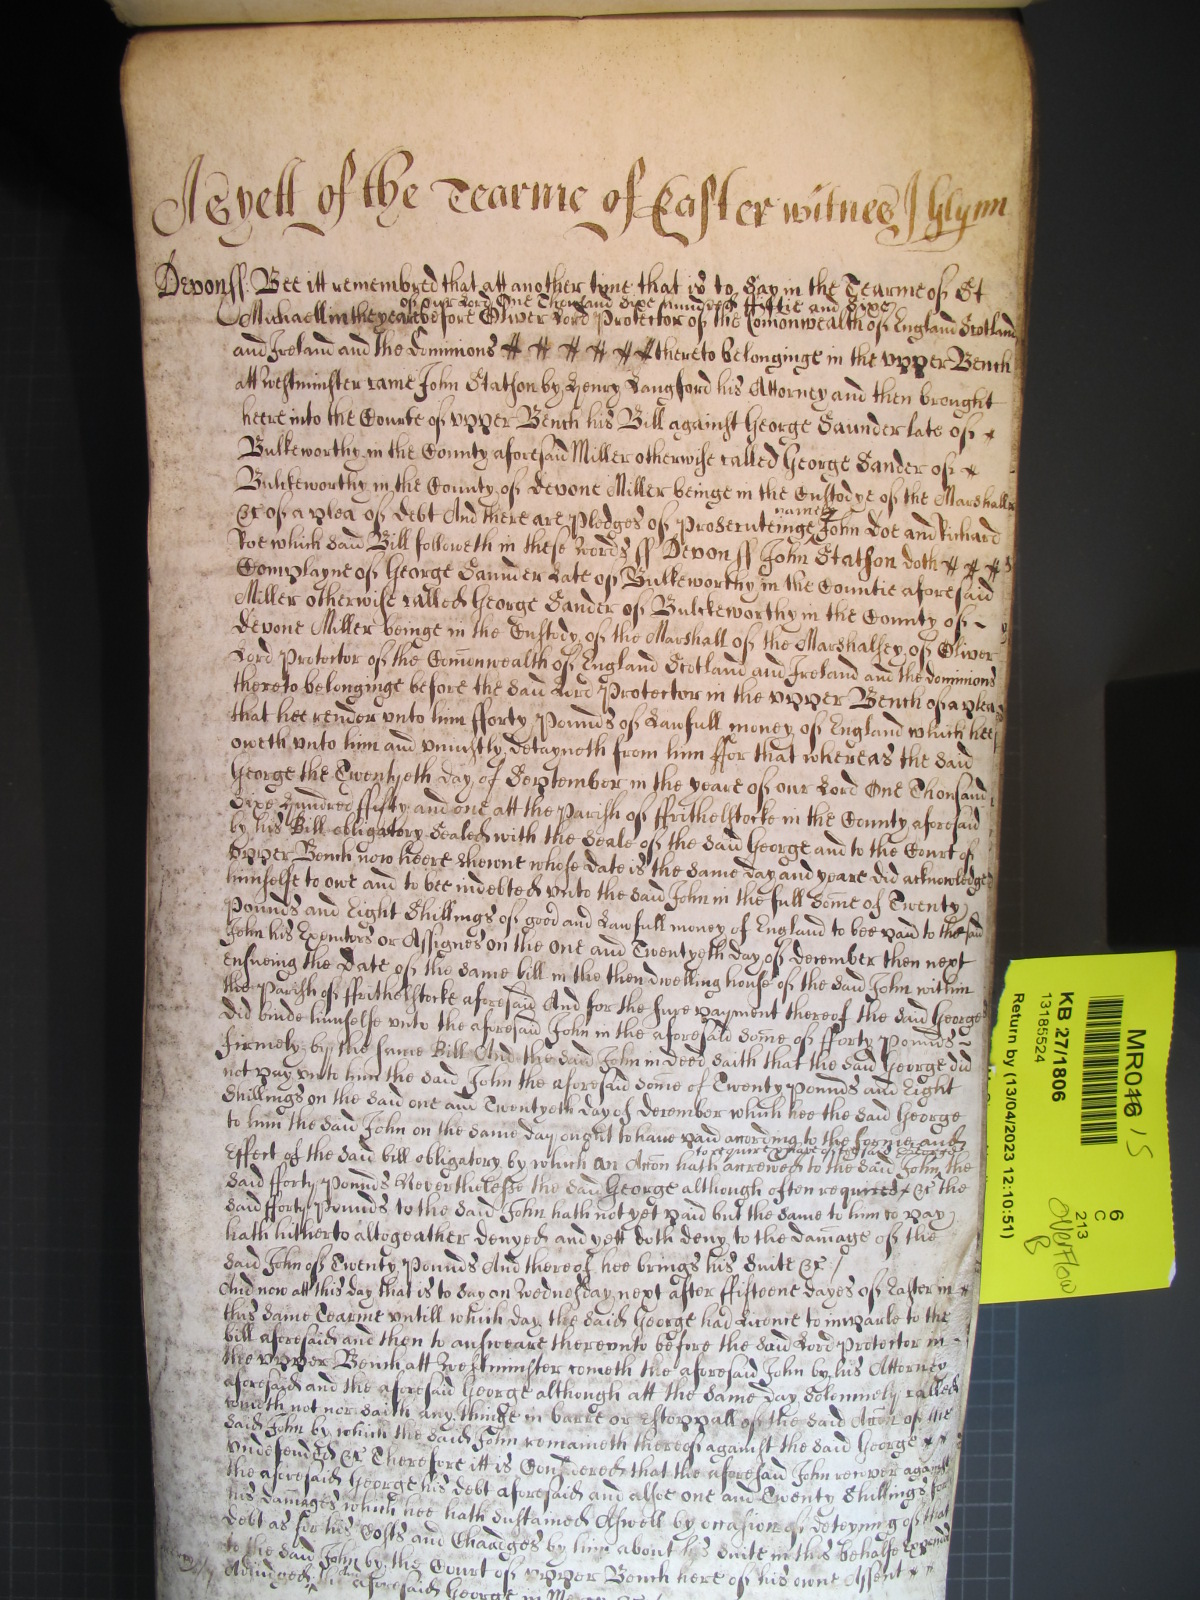 As yett of the Tearme of Easter witnes J Glynn
Devon ss. Bee itt remembred that att another tyme that is to say in the Tearme of St
of our Lord One Thousand Sixe hundred fiftie and Sixe
Michaell in the yeare before Oliver Lord Protector of the Comonwealth of England Scotland
and Ireland and the dominions # # # # # # thereto belonginge in the upper Bench
att Westminster came John Statson by Henry Langford his Attorney and then brought
heere into the Courte of upper Bench his Bill against George Saunder late of
Bulkeworthy in the County aforesaid Miller otherwise called George Sander of
Bulckeworthy in the County of Devone Miller beinge in the Custodye of the Marshall
namely
&c of a plea of debt And there are pledges of prosecuteinge John Doe and Richard
Roe which said Bill followeth in these words ss Devon ss John Statson doth # # #
Complayne of George Saunder late of Bulkeworthy in the Countie aforesaid
Miller otherwise called George Sander of Bulckeworthy in the County of
Devone Miller beinge in the Custody of the Marshall of the Marshalsey of Oliver
Lord Protector of the Comonwealth of England Scotland and Ireland and the dominions
thereto belonginge before the said Lord Protector in the upper Bench of a plea
that hee render unto him fforty pounds of Lawfull money of England which hee
oweth unto him and uniustly detayneth from him ffor that whereas the said
George the Twentyeth day of September in the yeare of our Lord One Thousand
Sixe Hundred ffifty and one att the parish of ffrithelstocke in the County aforesaid
by his Bill obligatory Sealed with the Seale of the said George and to the Court of
upper Bench now heere shewne whose date is the same day and yeare did acknowledge
himselfe to owe and to bee indebted unto the said John in the full some of Twenty
pounds and Eight Shillings of good and Lawfull money of England to bee paid to the said
John his Executors or Assignes on the one and Twentyeth day of december then next
ensueing the Date of the same bill in the then dwelling house of the said John within
the parish of ffrithelstocke aforesaid And for the sure payment thereof the said George
did binde himselfe unto the aforesaid John in the aforesaid some of fforty pounds
firmely by the same Bill And the said John in deed saith that the said George did
not pay unto him the said John the aforesaid some of Twenty pounds and Eight
Shillings on the said one and Twentyeth day of december which hee the said George
to him the said John on the same day ought to have paid according to the forme and
to require & have of the said George
Effect of the said bill obligatory by which an Accon hath accrewed to the said John the
said fforty pounds Neverthelesse the said George although often required &c the
said fforty pounds to the said John hath not yet paid but the same to him to pay
hath hitherto altogeather denyed and yett doth deny to the damage of the
said John of Twenty pounds And thereof hee brings his Suite &c /
And now att this day that is to say on Wednesday next after ffifteene dayes of Easter in
this same Tearme untill which day the said George had Licence to imparle to the
bill aforesaid and then to answeare thereunto before the said Lord Protector in
the upper Bench att Westminster cometh the aforesaid John by his Attorney
aforesaid and the aforesaid George although att the same day Solemnely called
cometh not nor saith any thinge in barre or estoppall of the said Accon of the
said John by which the said John remaineth thereof against the said George
undefended &c Therefore itt is Considered that the aforesaid John recover against
the aforesaid George his debt aforesaid and alsoe one and Twenty Shillings for
his damages which hee hath Sustained Aswell by occasion of deteyning of that
debt as for his Costs and Chardges by him about his Suite in this behalfe expended
to the said John by the Court of upper Bench here of his owne Assent
Adiudged &c aforesaid George in
MR046 15
KB 27/1806
13185524
Return by (13/04/2023 12:10:51)
6
C
213
overflow
B